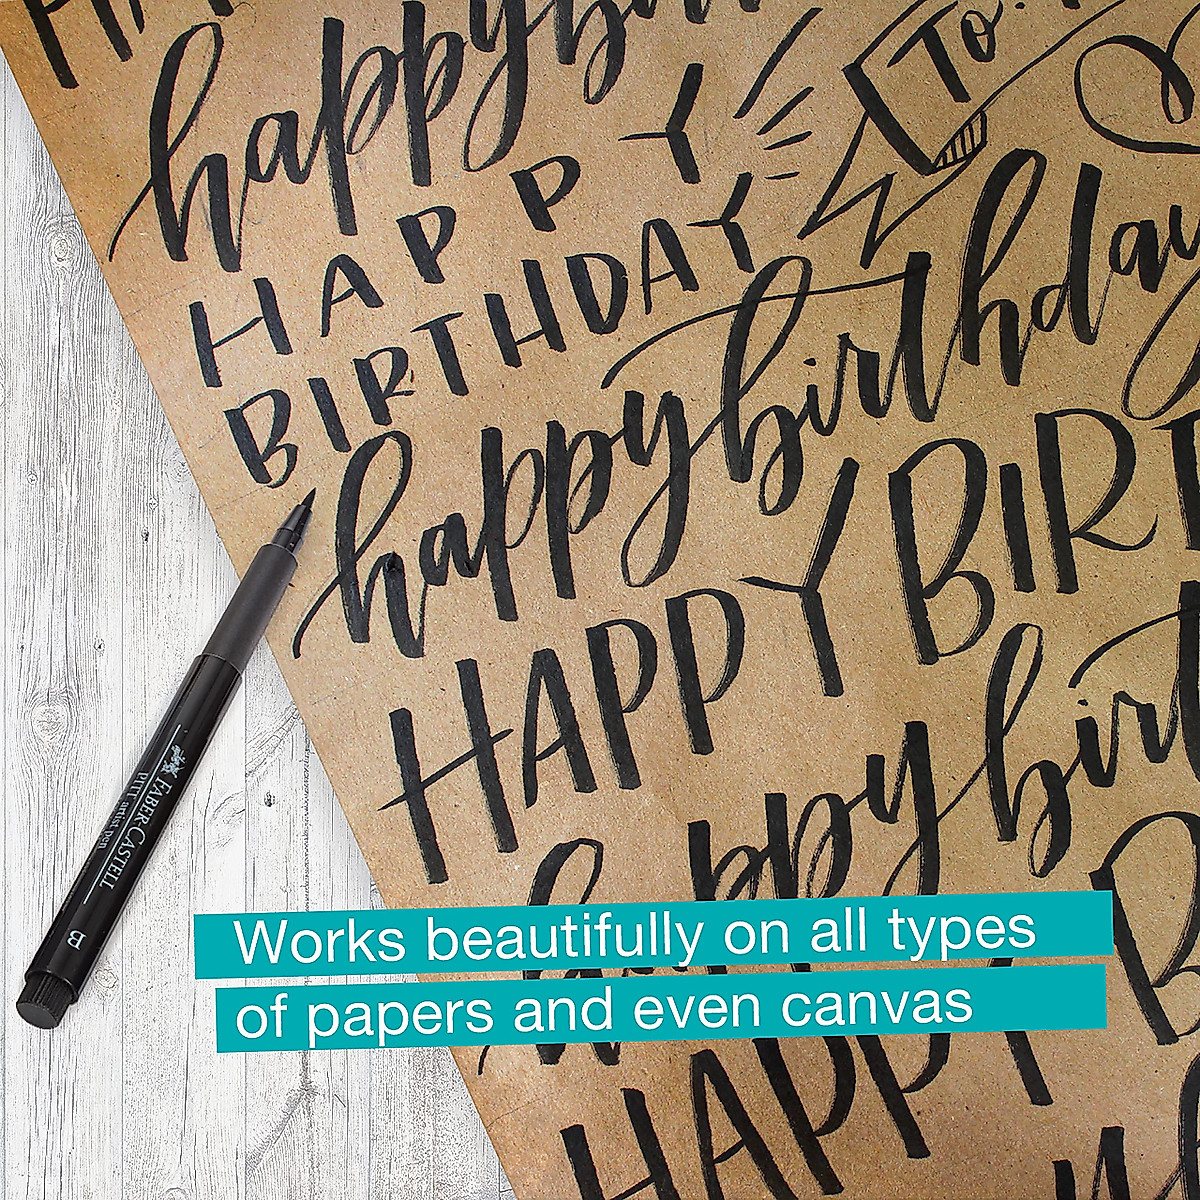 happy birthday
To:
HAPPY
BIRTHDAY
happy birthday
HAPPY BIRT
happy birt
HAPPY B
FABER-CASTELL
PITT artist pen
B
Works beautifully on all types
of papers and even canvas
HAPPY